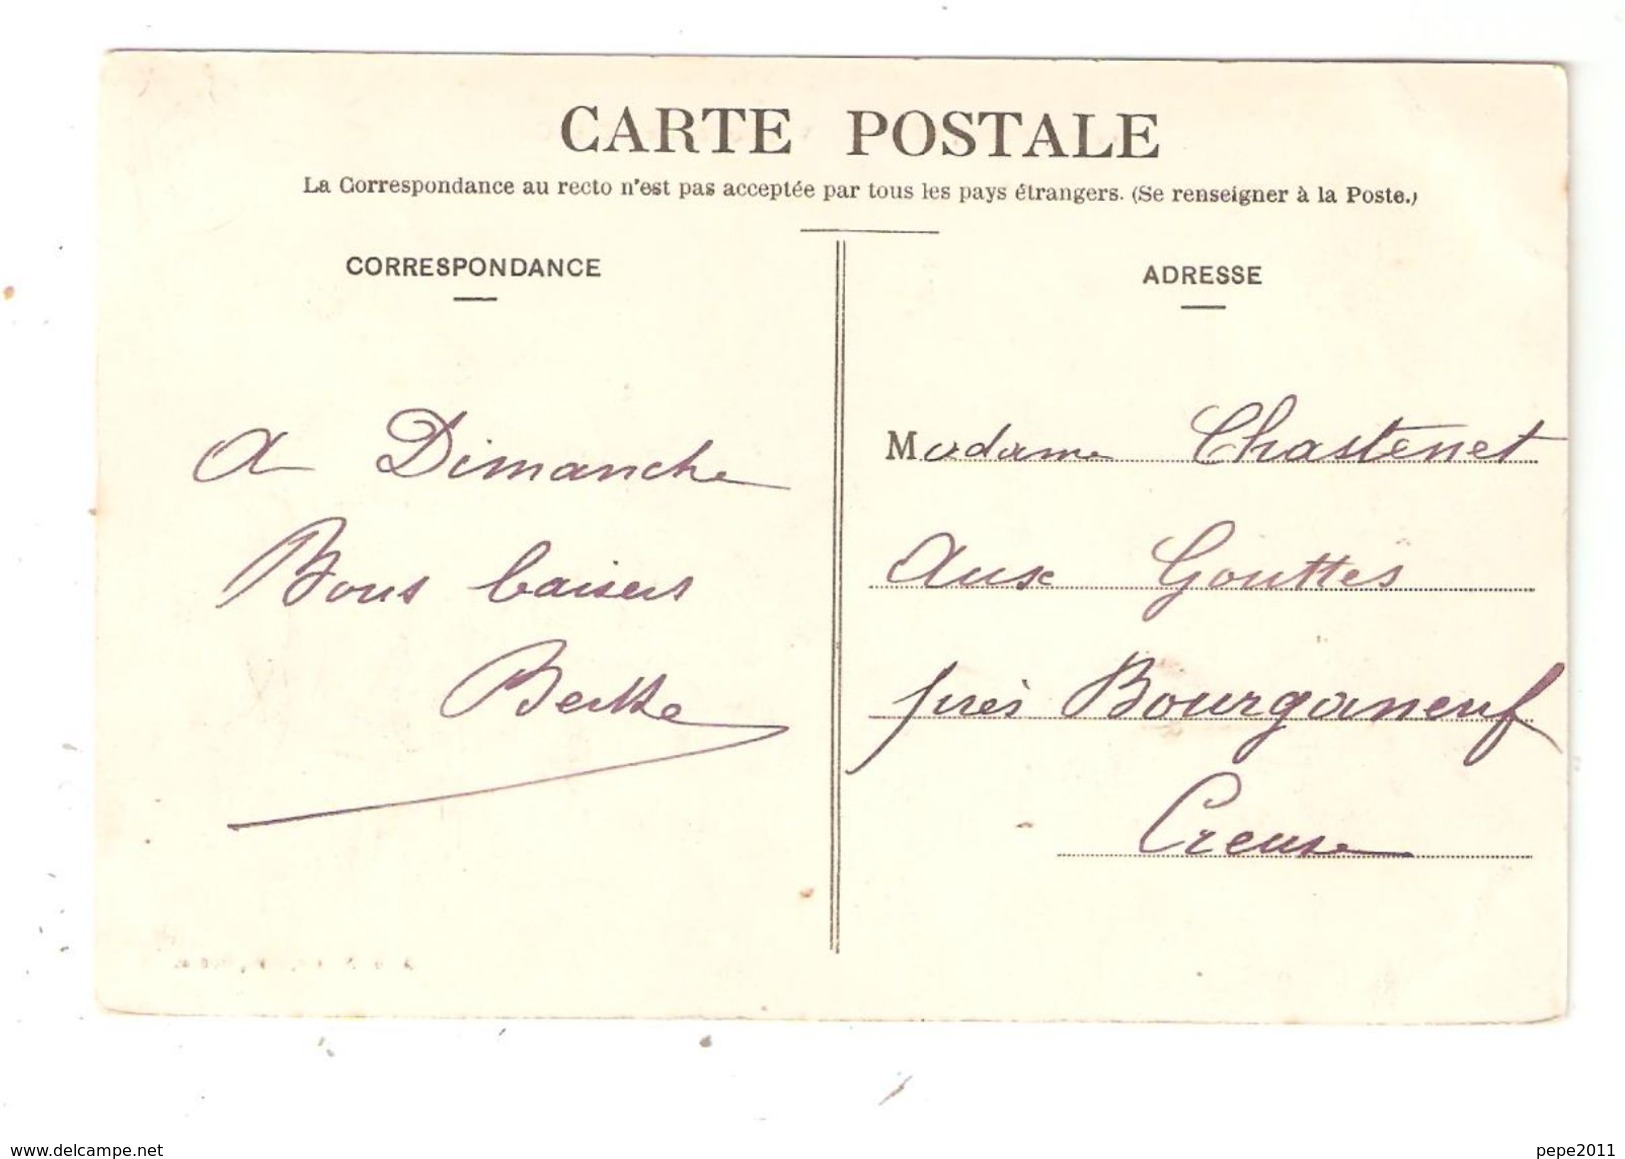 CARTE POSTALE
La Correspondance au recto n'est pas acceptée par tous les pays étrangers. (Se renseigner à la Poste.)
CORRESPONDANCE
A Dimanche
Bons baisers
Berthe
ADRESSE
Madame Chastenet
Aux Gouttes
près Bourganeuf
Creuse
www.delcampe.net
pepe2011